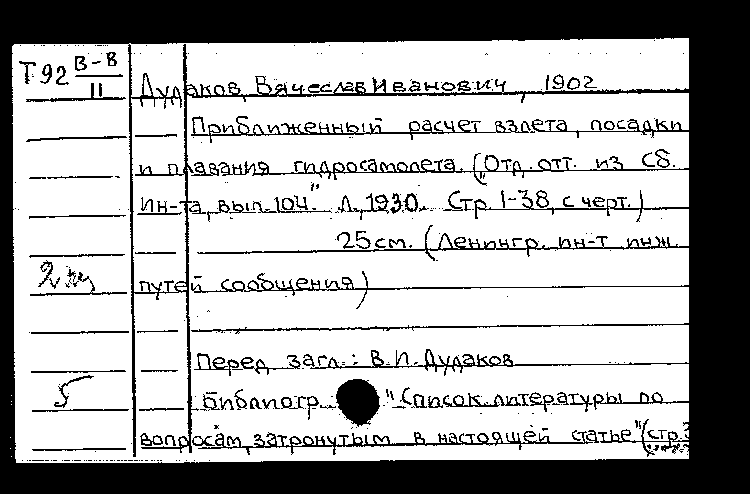 Т92 В-В
II
Дудаков, Вячеслав Иванович, 1902
Приближенный расчет взлета, посадки
и плавания гидросамолета. ("Отд. отт. из Сб.
Ин-та, вып. 104." Л., 1930. Стр. 1-38, с черт.)
25 см. (Ленингр. ин-т инж.
путей сообщения)
Перед загл.: В.И. Дудаков
Библиогр. "Список литературы по
вопросам, затронутым в настоящей статье" (стр.